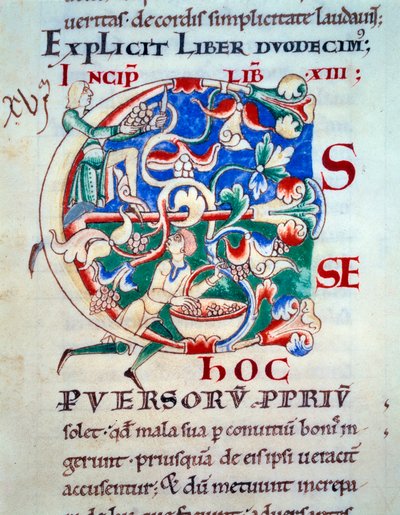 ueritas· de cordis simplicitate laudauit;
EXPLICIT LIBER DVODECIM';
INCIP̄ LIB̄ XIII;
E S
SE
hOC
PVERSORV̄ PPRIV̄
solet· qđ mala sua ꝑ conuitiū bonis in
gerunt· priusquā de eis ipsi ueracit̄
accusentur; & dū metuunt increpa